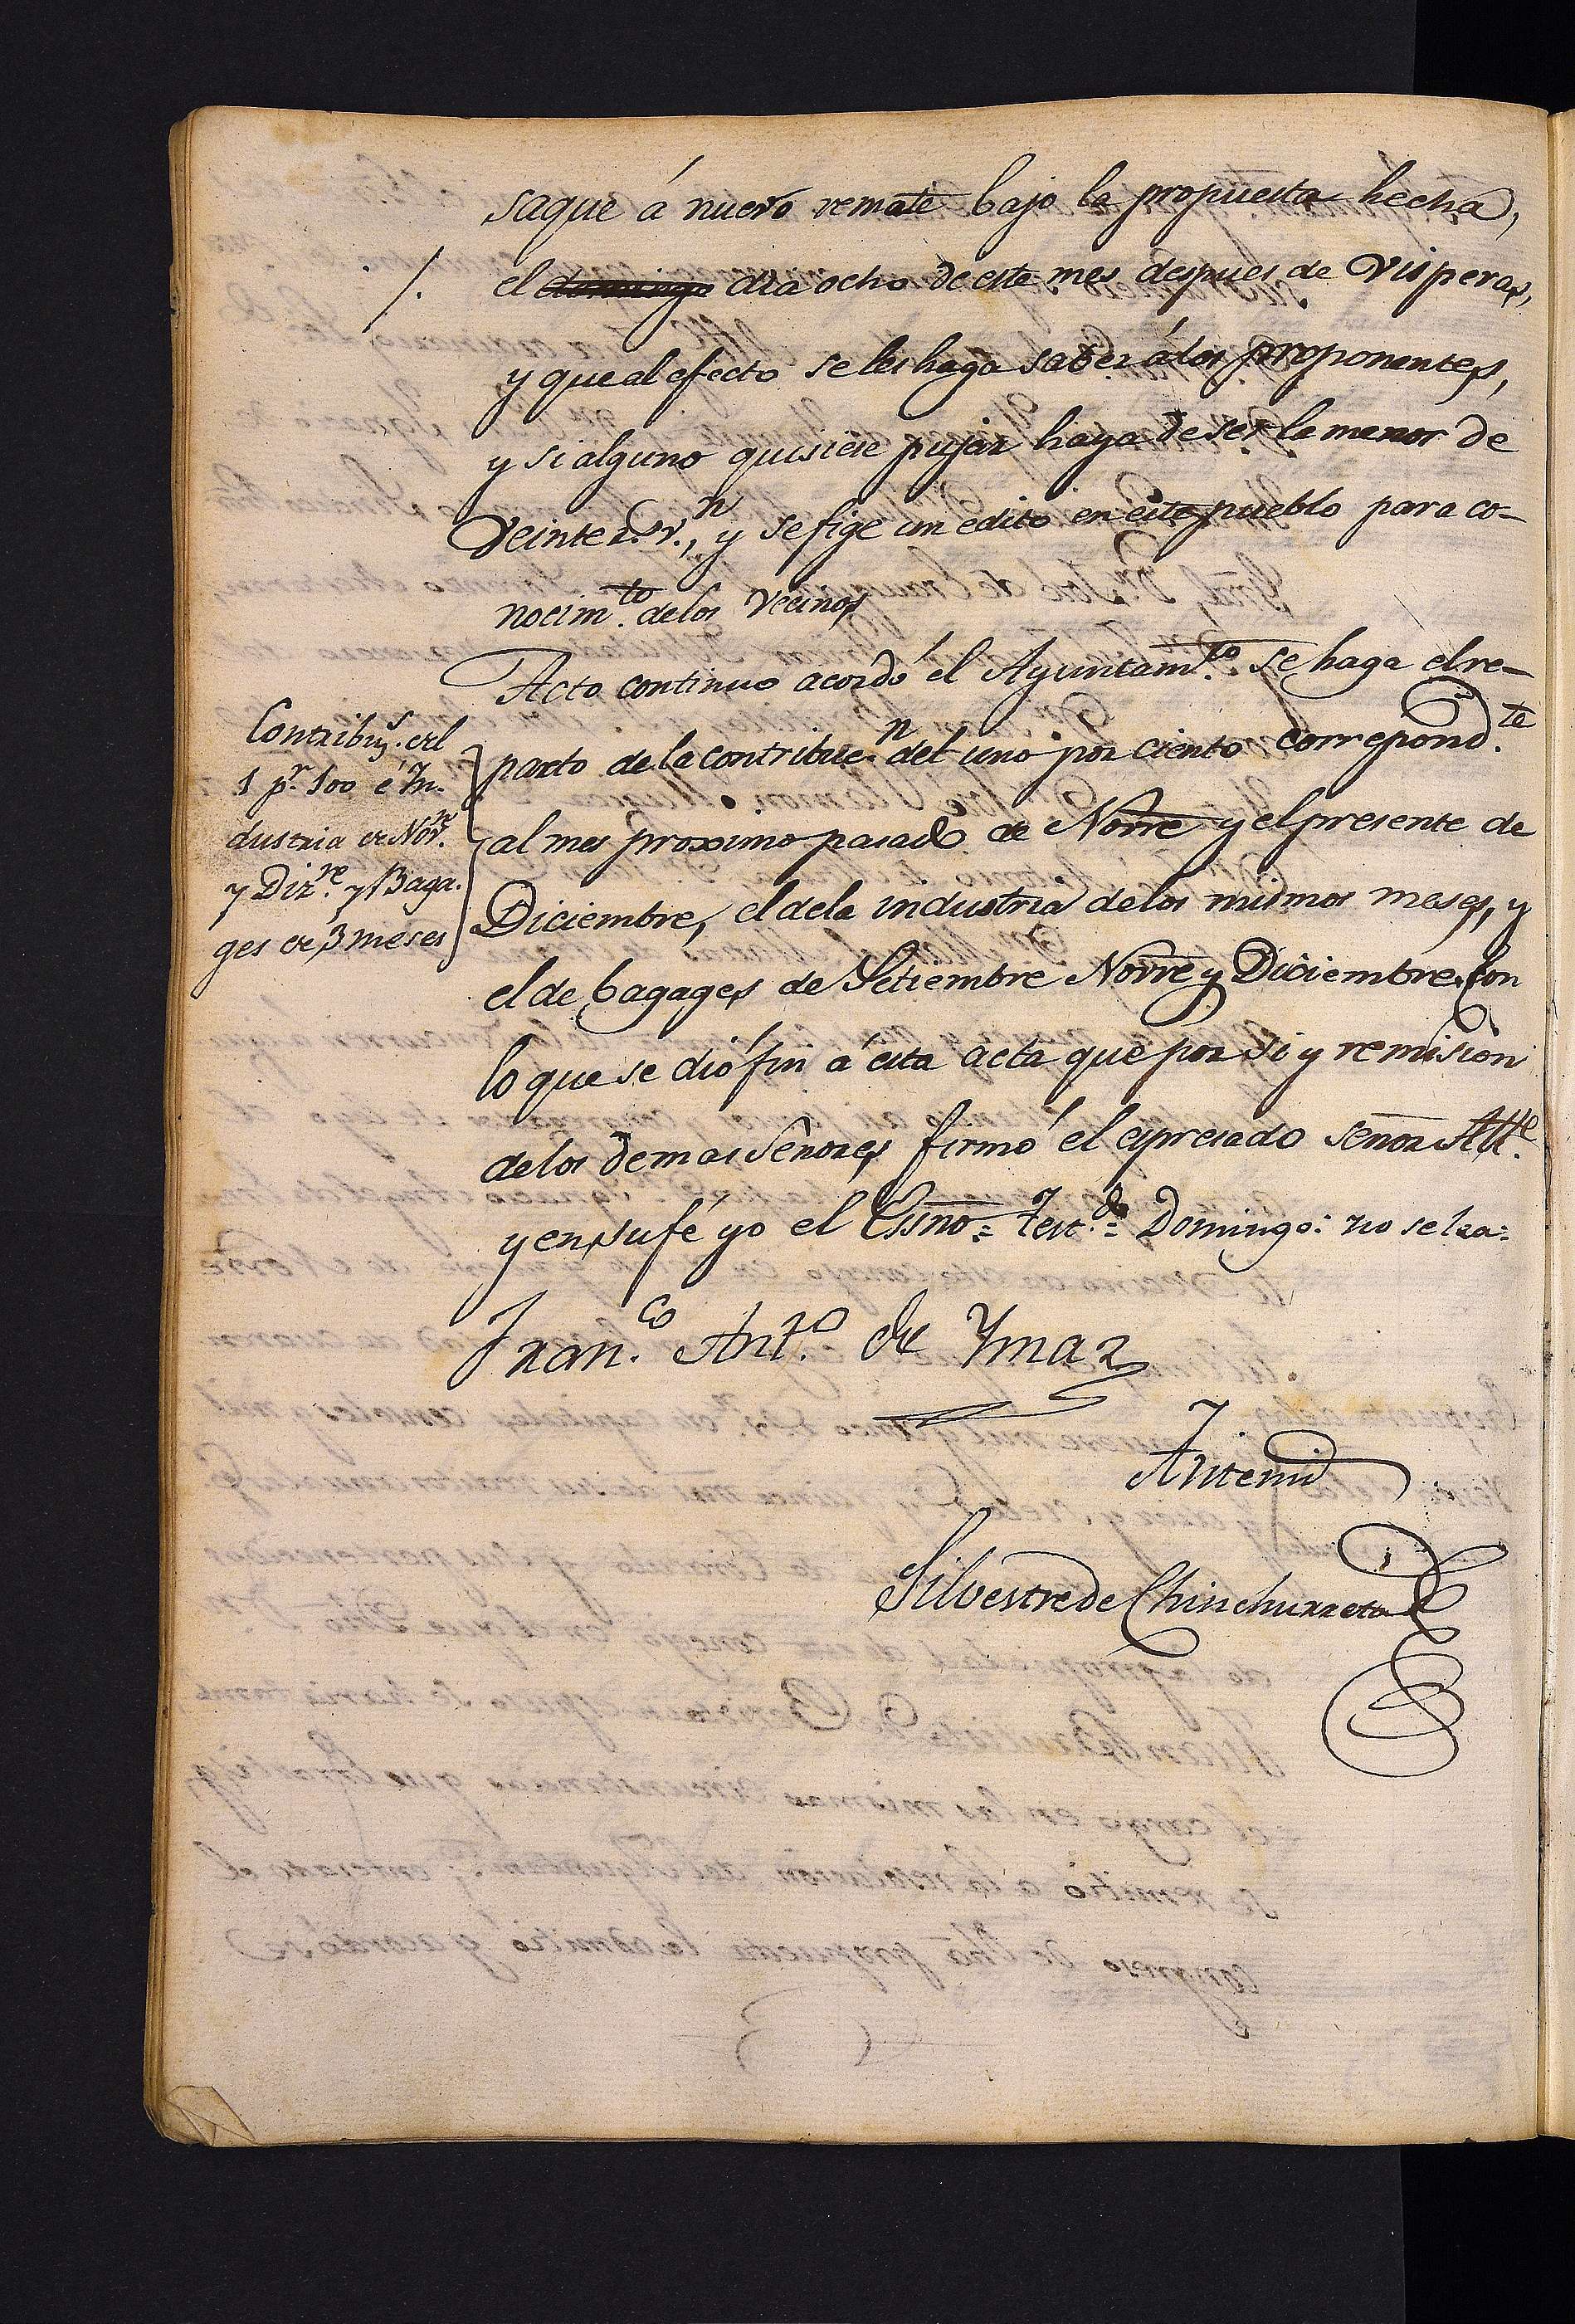 saque á nuevo remate bajo la propuesta hecha,
/. el domingo dia ocho de este mes despues de Visperas,
y que al efecto se les haga saber á los proponentes,
y si alguno quisiere pujar haya de ser la menor de
Veinte r.s v.n, y se fige un edito en este pueblo para co-
nocim.to de los Vecinos
Acto continuo acordó el Ayuntam.to se haga el re-
parto de la contribuc.n del uno por ciento correspond.te
al mes proximo pasado de Novre y el presente de
Diciembre, el de la industria de los mismos meses, y
el de bagages de Setiembre Novre y Diciembre. Con
lo que se dió fin á esta acta que por si y remision
de los demas Señores firmó el espresado señor Alt.e
y en su fé yo el Essno = Test.do = Domingo: no se lea =
Contribu.s del
1 p.r 100 é In-
dustria de Nov.re
y Diz.re y Baga-
ges de 3 meses
Fran.co Ant.o de Ymaz
Antemi
Silvestre de Chinchurreta